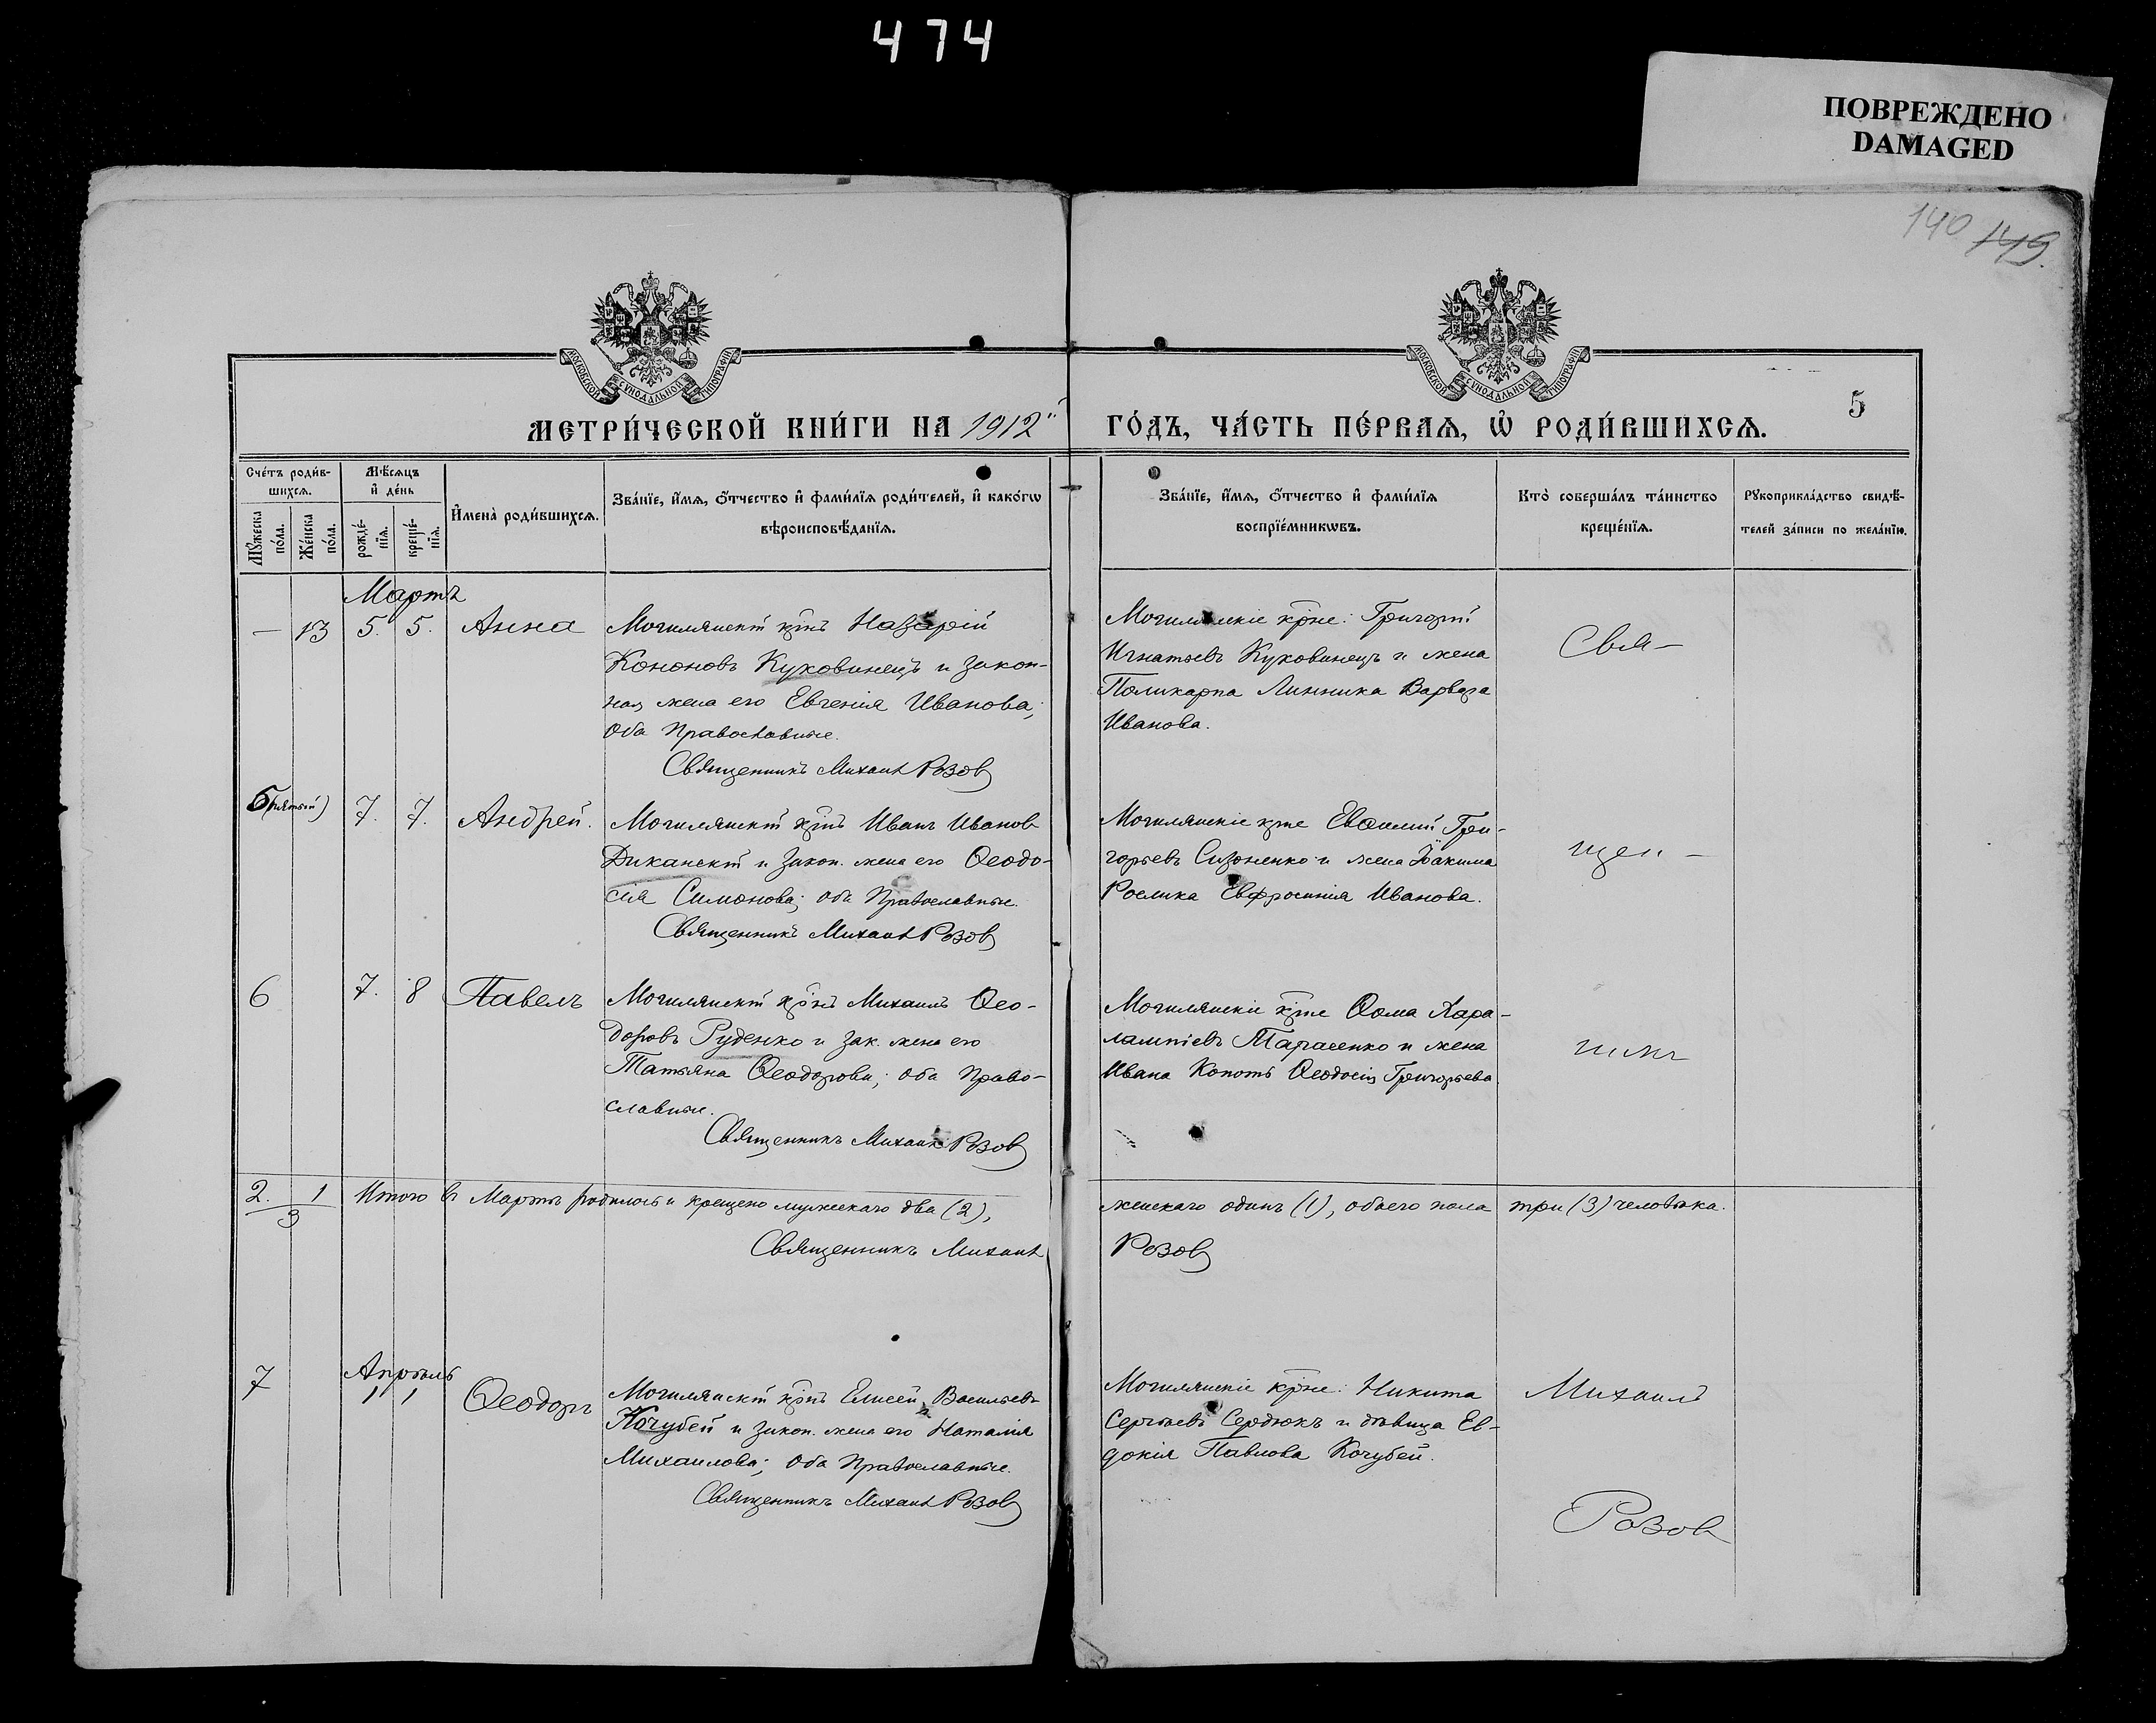 474
ПОВРЕЖДЕНО
DAMAGED
140 149.
МОСКОВСКОЙ СѴНОДАЛЬНОЙ ТИПОГРАФІИ
МОСКОВСКОЙ СѴНОДАЛЬНОЙ ТИПОГРАФІИ
5
МЕТРИ́ЧЕСКОЙ КНИ́ГИ НА 1912 ГО́ДЪ, ЧА́СТЬ ПЕ́РВАѦ, Ѡ҆ РОДИ́ВШИХСѦ.
Сче́тъ роди́в-
шихсѧ.
Мѣ́сѧцъ
и҆ де́нь
Мꙋ́жеска
по́ла.
Же́нска
по́ла.
рожде́-
нїѧ.
креще́-
нїѧ.
И҆мена̀ роди́вшихсѧ.
Зва́нїе, и҆́мѧ, ѻ҆́тчество и҆ фами́лїѧ роди́телей, и҆ како́гѡ
вѣроисповѣ́данїѧ.
Зва́нїе, и҆́мѧ, ѻ҆́тчество и҆ фами́лїѧ
воспрїе́мникѡвъ.
Кто̀ соверша́лъ та́инство
креще́нїѧ.
Рꙋкоприкла́дство свидѣ́-
телей за́писи по жела́нїю.
Мартъ
— 13 5. 5. Анна
Могилянскій крнъ Назарій
Кононовъ Куковинецъ и закон-
ная жена его Евгенія Иванова;
Оба Православные.
Священникъ Михаил Розов
Могилянскіе крне: Григорій
Игнатьевъ Куковинецъ и жена
Поликарпа Линника Варвара
Иванова.
Свя-
5 (пятый) 7. 7. Андрей.
Могилянскій крнъ Иванъ Иванов
Диканскій и закон. жена его Ѳеодо-
сія Симонова; оба Православные.
Священникъ Михаил Розов
Могилянскіе крне Евѳимій Гри-
горьевъ Сизоненко и жена Іоакима
Рослика Евфросинія Иванова.
щен-
6 7. 8 Павелъ
Могилянскій крнъ Михаилъ Ѳео-
доровъ Руденко и зак. жена его
Татьяна Ѳеодорова; оба Право-
славные.
Священникъ Михаил Розов
Могилянскіе крне Ѳома Хара-
лампіевъ Тарасенко и жена
Ивана Копоть Ѳеодосія Григорьева.
никъ
2. 1
3
Итого въ Мартѣ родилось и крещено мужескаго два (2), женскаго одинъ (1), обоего пола три (3) человѣка.
Священникъ Михаил Розов
Апрѣль
7 1 1 Ѳеодоръ
Могилянскій крнъ Елисей Васильевъ
Кочубей и закон. жена его Наталія
Михаилова; оба Православные.
Священникъ Михаил Розов
Могилянскіе крне: Никита
Сергѣевъ Сердюкъ и дѣвица Ев-
докія Павлова Кочубей.
Михаилъ
Розов